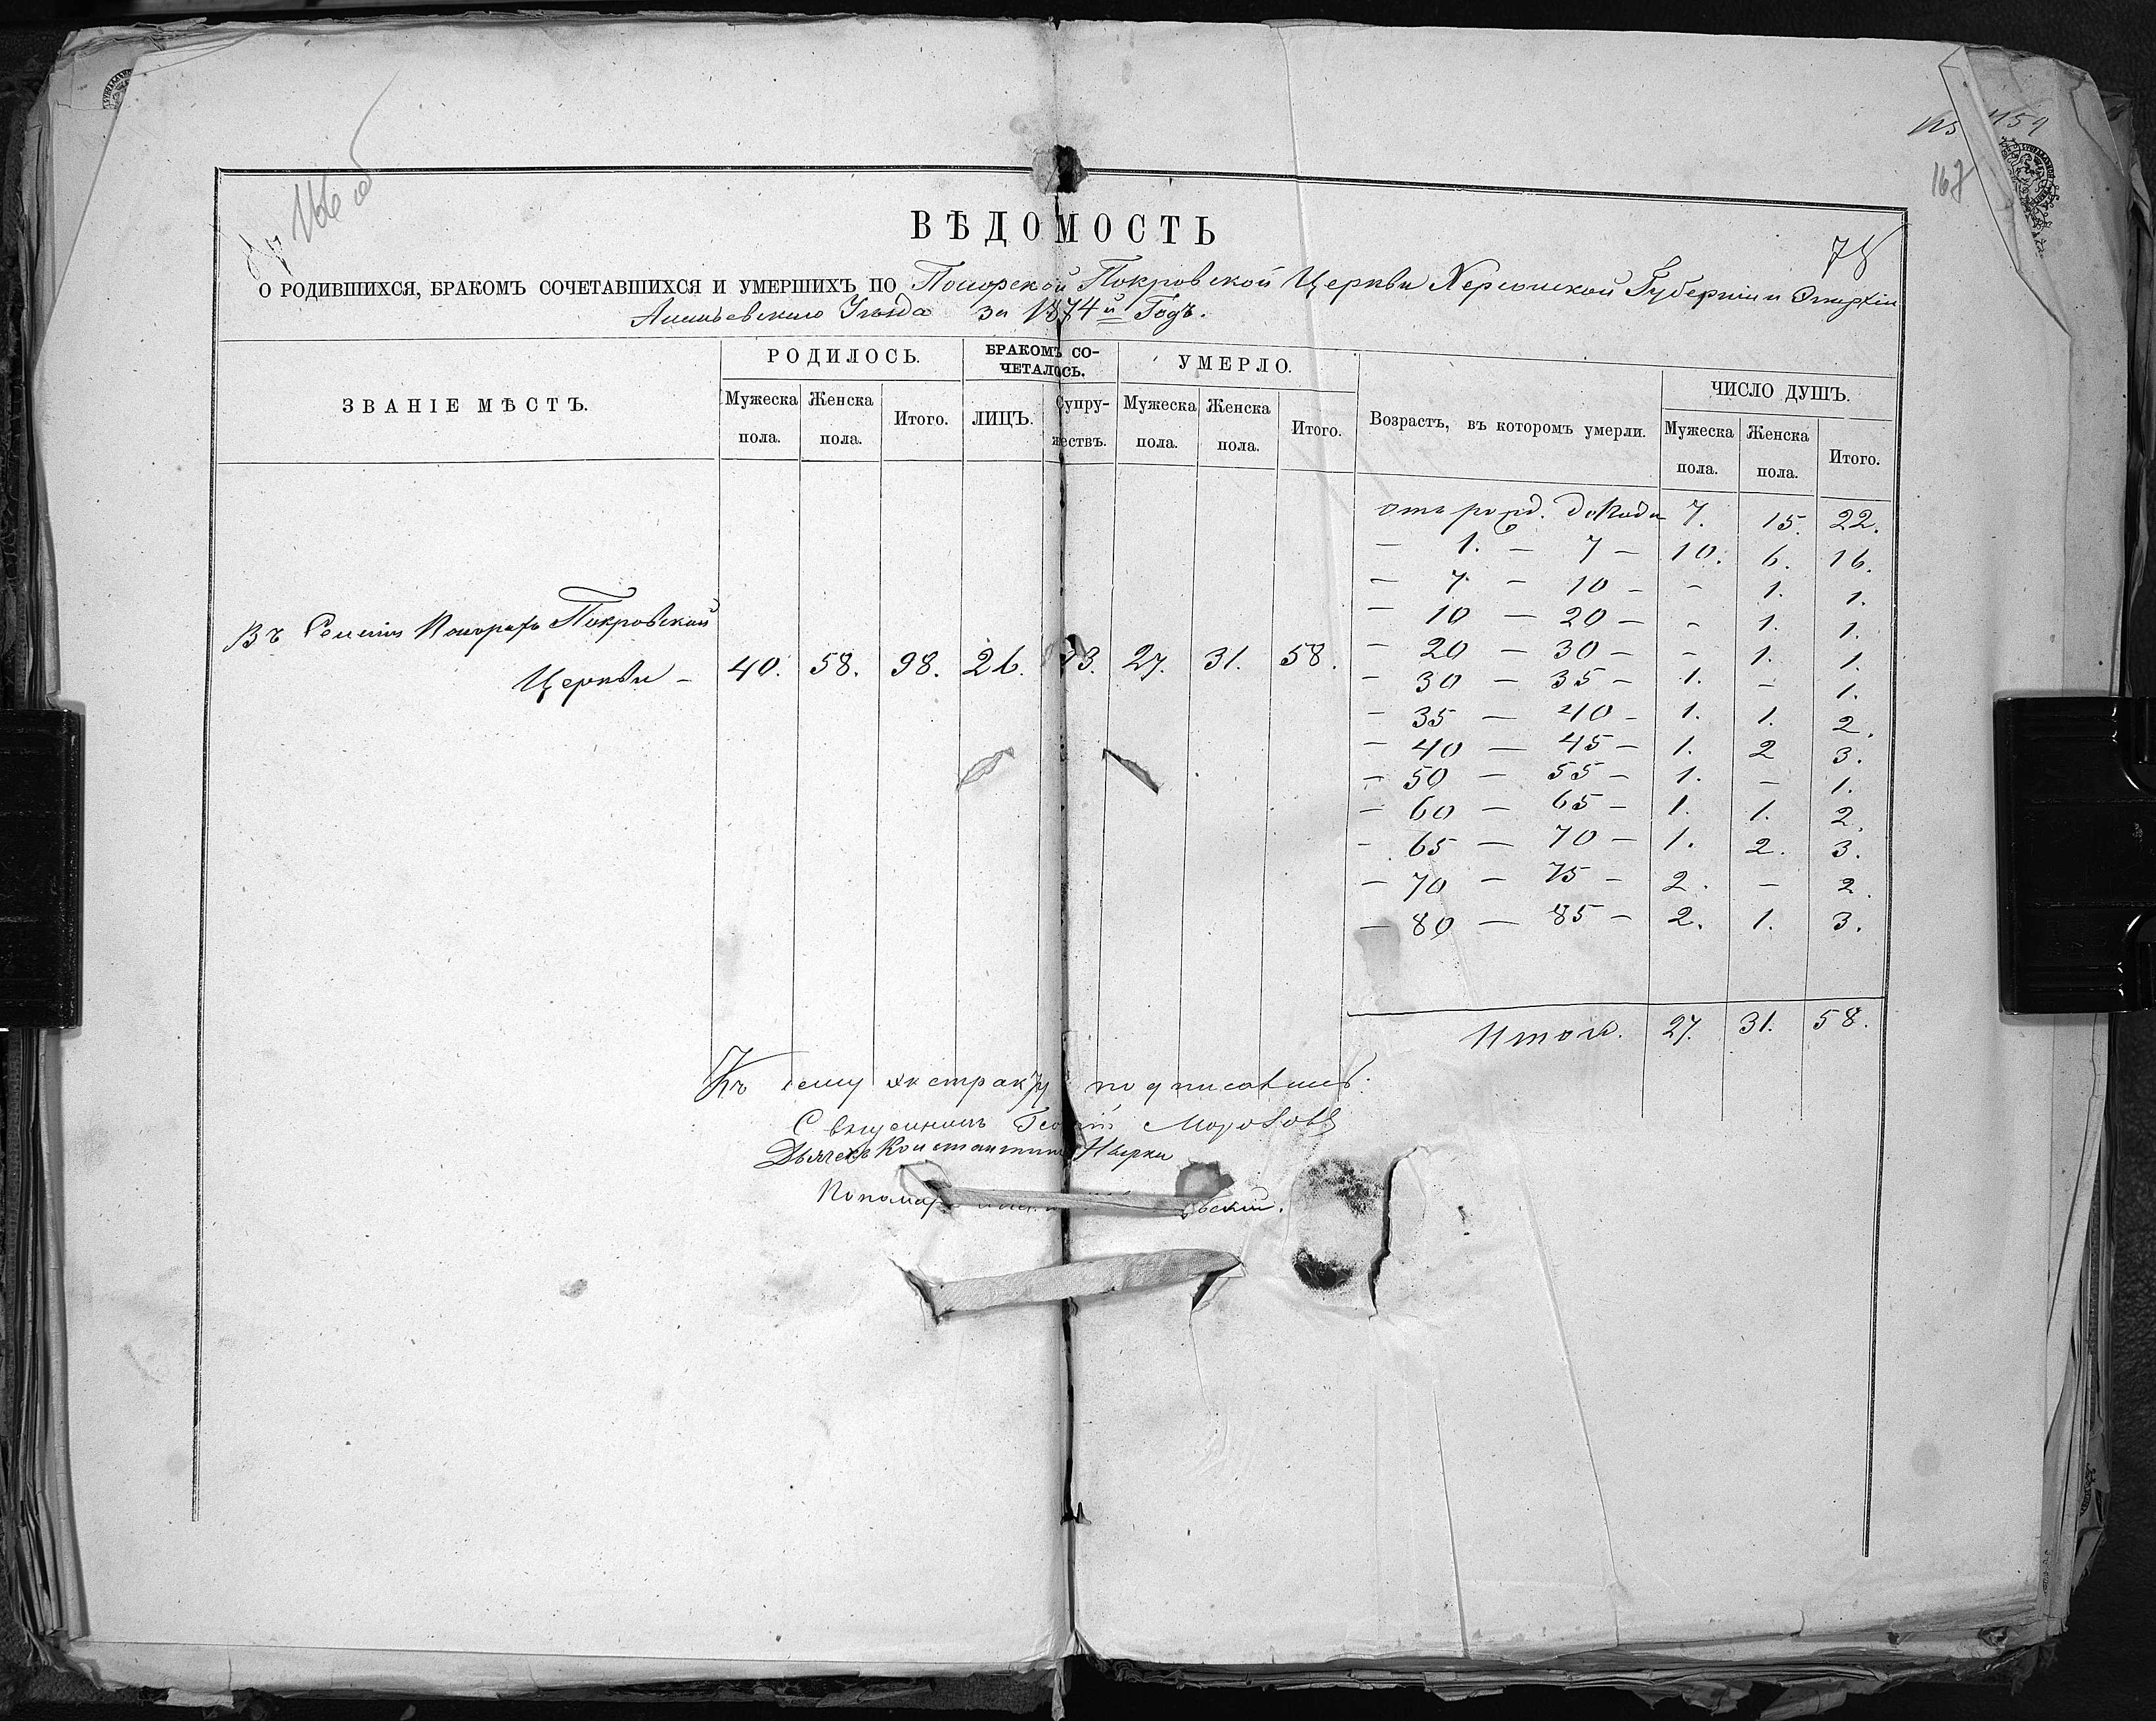 166 об
159
167
78
ВѢДОМОСТЬ
О РОДИВШИХСЯ, БРАКОМЪ СОЧЕТАВШИХСЯ И УМЕРШИХЪ ПО Покровской Церкви Херсонской Губерніи и Эпархіи
Ананьевскаго Уѣзда за 1874й Годъ.
ЗВАНІЕ МѢСТЪ.
РОДИЛОСЬ.
БРАКОМЪ СО-
ЧЕТАЛОСЬ.
УМЕРЛО.
Возрастъ, въ которомъ умерли.
ЧИСЛО ДУШЪ.
Мужеска пола. Женска пола. Итого. ЛИЦЪ. Супру-жествъ. Мужеска пола. Женска пола. Итого. Мужеска пола. Женска пола. Итого.
Въ Селеніи Покровской
Церкви – 40. 58. 98. 26. 13. 27. 31. 58.
Отъ рожд. до 1 года 7. 15. 22.
– 1. – 7 – 10. 6. 16.
– 7 – 10 – – 1. 1.
– 10 – 20 – – 1. 1.
– 20 – 30 – – 1. 1.
– 30 – 35 – 1. – 1.
– 35 – 40 – 1. 1. 2.
– 40 – 45 – 1. 2 3.
– 50 – 55 – 1. – 1.
– 60 – 65 – 1. 1. 2.
– 65 – 70 – 1. 2. 3.
– 70 – 75 – 2. – 2.
– 80 – 85 – 2. 1. 3.
Итого. 27. 31. 58.
Къ сему экстракту подписались:
Священникъ Георгій
Дьячекъ Константинъ